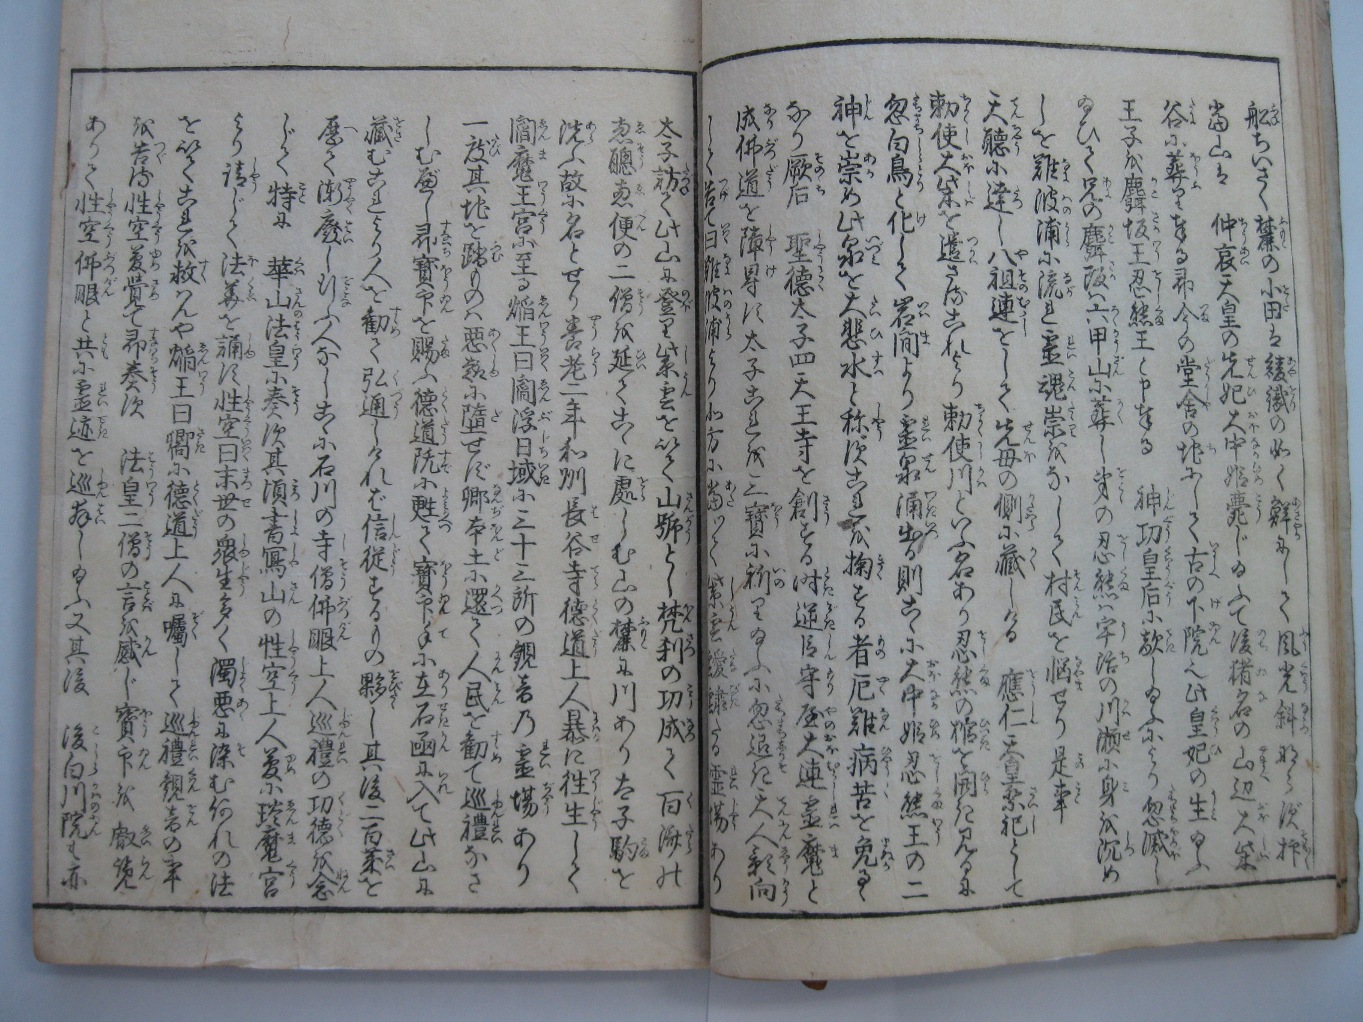 船ちいさく麓の小田は綾織の如く鮮にして風光斜ならず抑
当山は　仲哀天皇の先妃大中姫薨じ給ふて後猪名の山辺大柴
谷に葬りたる即今の堂舎の地にして古の下院也此皇妃の生給ふ
王子を麛坂王忍熊王と申たる　神功皇后に敵し給ふにより忽滅し
給ひて兄の麛坂は六甲山に葬し弟の忍熊は宇治の川瀬に身を沈め
しを難波浦に流れ霊魂崇をなして村民を悩せり是事
天聴に達し八祖連をして先母の側に蔵しける　應仁天皇祭祀として
勅使大柴を遣さるこれより勅使川といふ名あり忍熊の棺を開き見るに
忽白鳥と化して岩間より霊泉涌出る則こゝに大中姫忍熊王の二
神を崇め此泉を大悲水と称ずこれを掬する者厄難病苦を免る
なり厥后　聖徳太子四天王寺を創する時逆臣守屋大連霊魔と
成佛道を障碍す太子これを三寶に祈り給ふに忽近き天人影向
して告て曰難波浦より北方に當りて紫雲靉靆たる霊場あり
太子訪て此山に登り紫雲を以て山號とし梵刹の功成て百済の
恵聰恵便の二僧を延てこゝに處しむ山の麓に川あり太子駒を
洗ふ故に名とせり養老二年和州長谷寺徳道上人暴に往生して
閻魔王宮に至る焔王曰閻浮日域に三十三所の観音乃霊場あり
一度其地を踏ものは悪趣に墮せず卿本土に還て人民を勧て巡禮なさ
しむべし即寶印を賜ふ徳道既に甦て寶印手に在石函に入て此山に
蔵むこれより人を勧て弘通しければ信従するもの夥し其後二百業を
歴て漸廢し行ふ人なしこゝに石川の寺僧佛眼上人巡禮の功徳を念
じて特に　華山法皇に奏す其頃書寫山の性空上人夢に琰魔宮
より請じて法華を誦す性空曰末世の衆生多く濁悪に染む何れの法
を以てこれを救んや焔王曰嚮に徳道上人に囑して巡禮観音の事
を告る性空夢覚て即奏す　法皇二僧の言を感じ寶印を叡覧
ありて性空佛眼と共に霊迹を巡拝し給ふ又其後　後白川院も亦